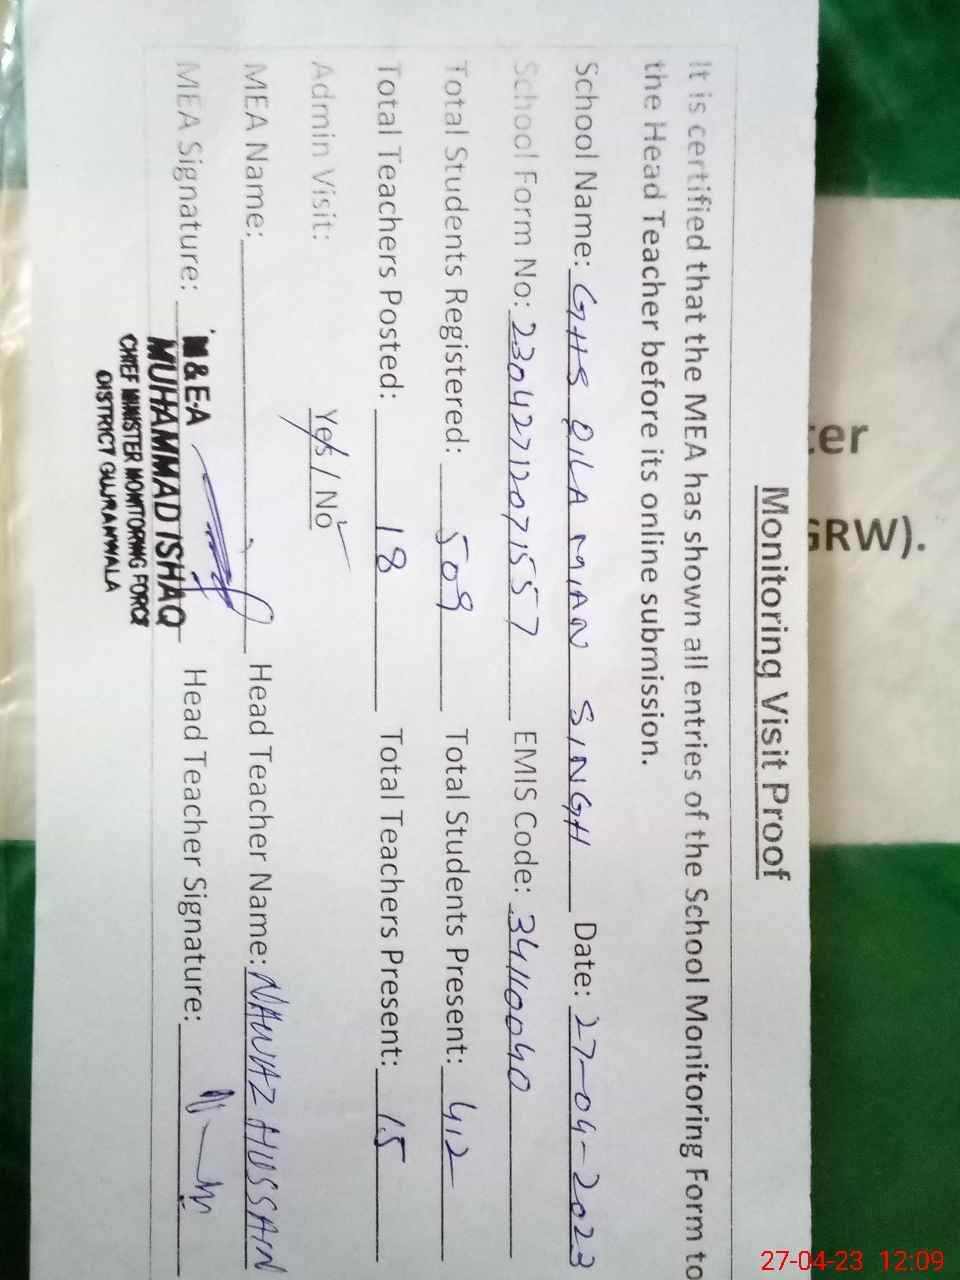 Monitoring Visit Proof
It is certified that the MEA has shown all entries of the School Monitoring Form to
the Head Teacher before its online submission.
School Name: GHS QILA MIAN SINGH Date: 27-04-2023
School Form No: 23042712071557 EMIS Code: 34110040
Total Students Registered: 509 Total Students Present: 412
Total Teachers Posted: 18 Total Teachers Present: 15
Admin Visit: Yes / No
MEA Name: Head Teacher Name: NAWAZ HUSSAIN
MEA Signature: Head Teacher Signature:
M & E-A
MUHAMMAD ISHAQ
CHIEF MINISTER MONITORING FORCE
DISTRICT GUJRANWALA
er
GRW).
27-04-23 12:09